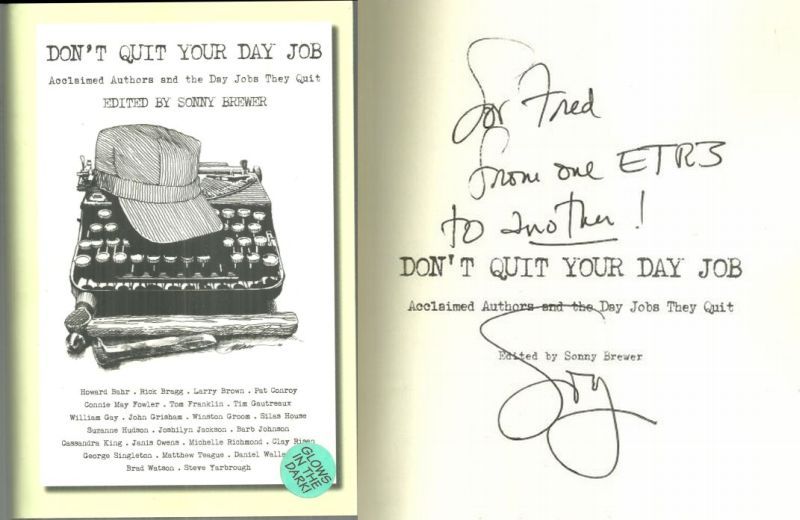 DON'T QUIT YOUR DAY JOB
Acclaimed Authors and the Day Jobs They Quit
EDITED BY SONNY BREWER
Howard Bahr . Rick Bragg . Larry Brown . Pat Conroy
Connie May Fowler . Tom Franklin . Tim Gautreaux
William Gay . John Grisham . Winston Groom . Silas House
Suzanne Hudson . Joshilyn Jackson . Barb Johnson
Cassandra King . Janis Owens . Michelle Richmond . Clay Risen
George Singleton . Matthew Teague . Daniel Walla
Brad Watson . Steve Yarbrough
GLOWS
IN THE
DARK!
For Fred
from one ETR3
to another!
DON'T QUIT YOUR DAY JOB
Acclaimed Authors and the Day Jobs They Quit
Edited by Sonny Brewer